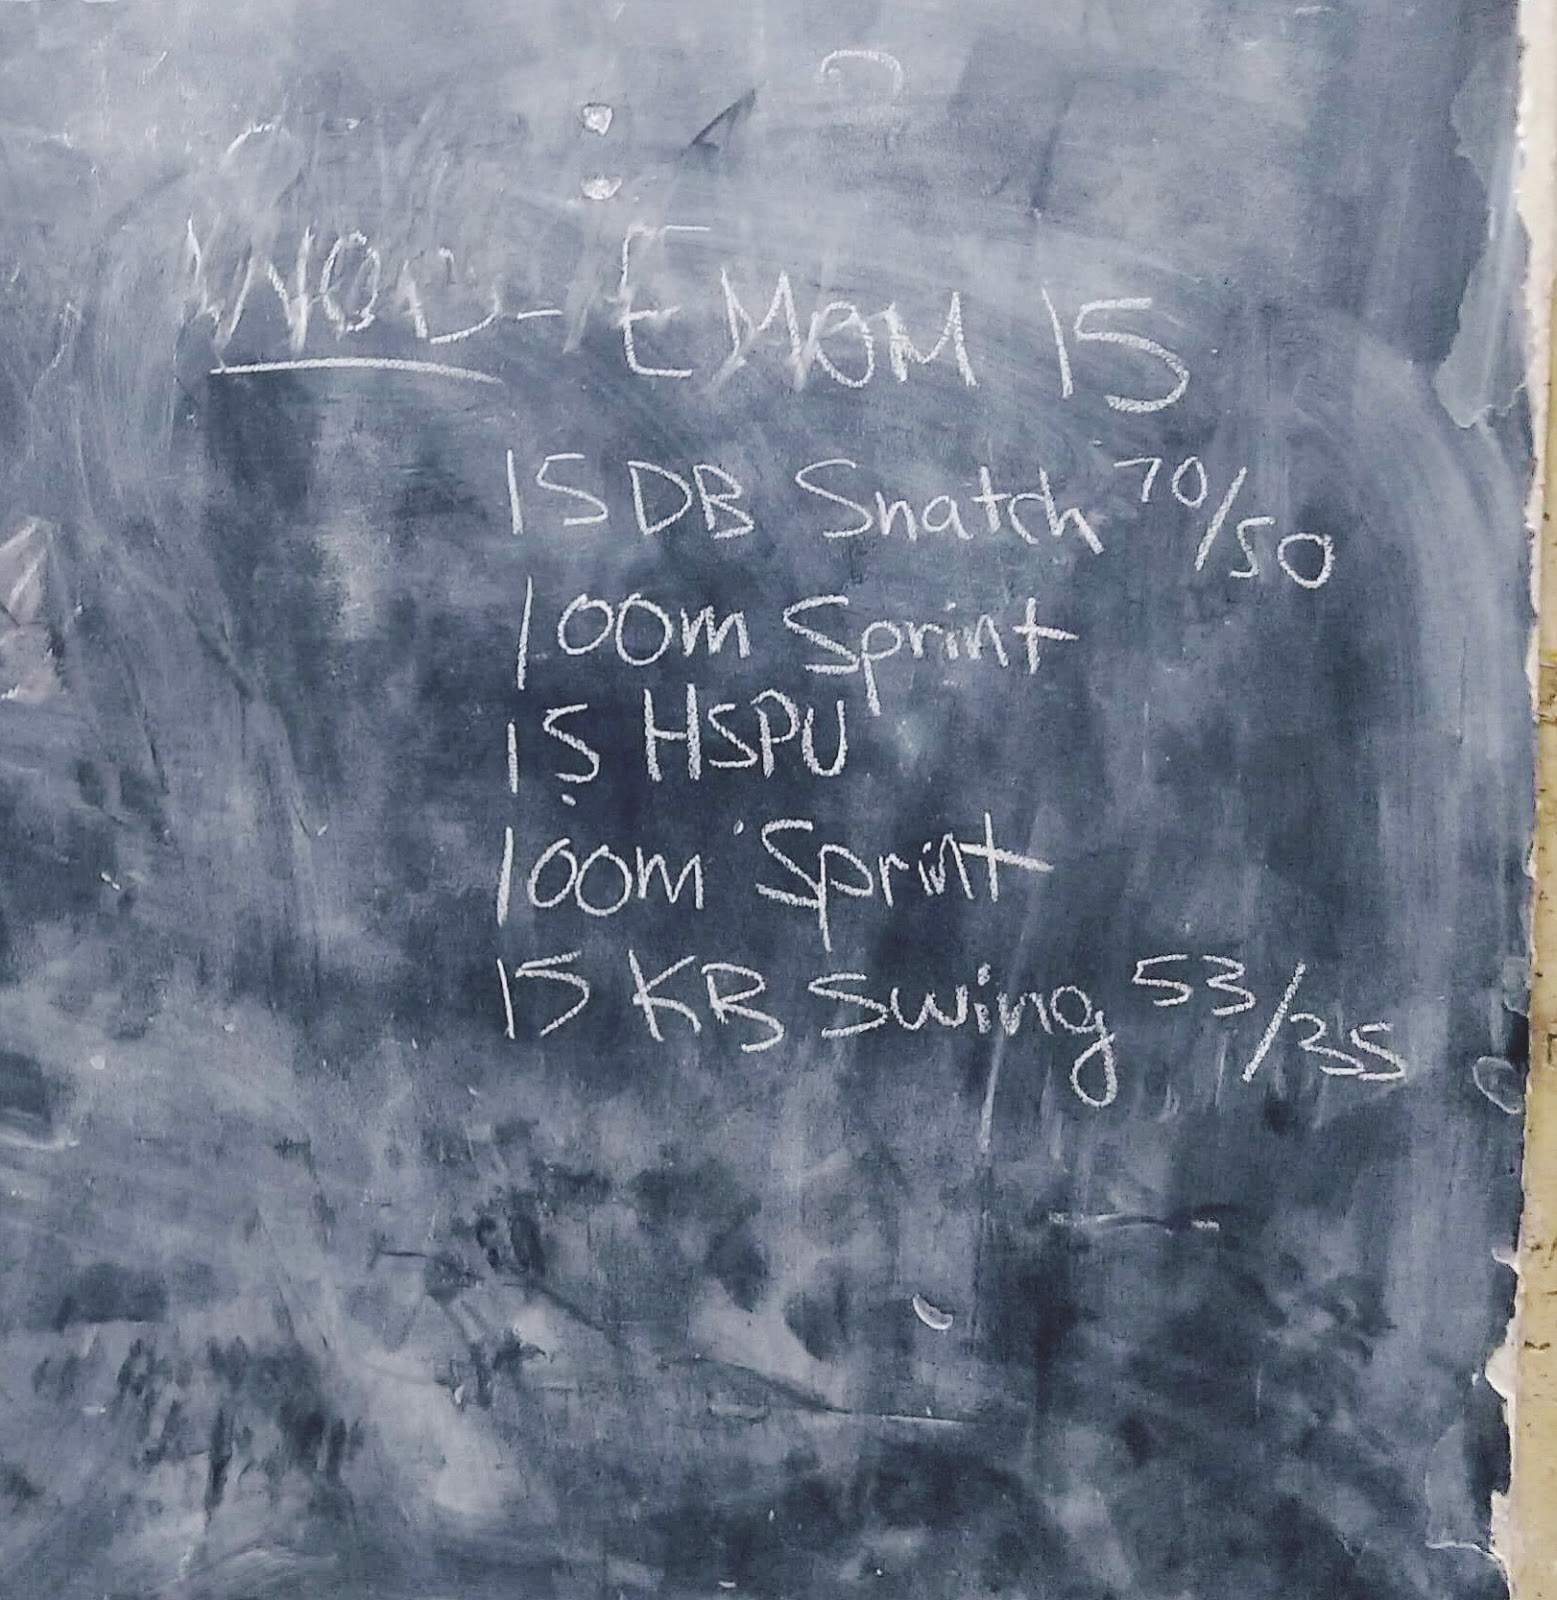 WOD - EMOM 15
15 DB Snatch 70/50
100m Sprint
15 HSPU
100m Sprint
15 KB Swing 53/35